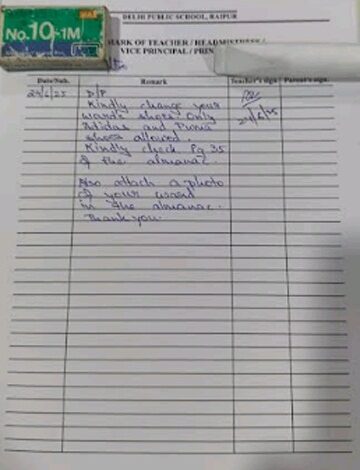 DELHI PUBLIC SCHOOL, RAIPUR
No.10-1M
MARK OF TEACHER / HEADMISTRESS /
VICE PRINCIPAL / PRIN
Date/Sub. Remark Teacher's sign. Parent's sign.
24/6/25 D/P
Kindly change your
ward's shoes. Only
Adidas and Puma
shoes allowed.
Kindly check Pg 35
of the almanac.
24/6/25
Also attach a photo
of your ward
in the almanac.
Thank you.